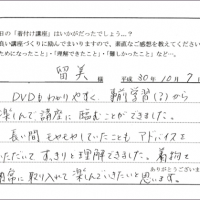 日の「着付け講座」はいかがだったでしょう…?
良い講座づくりに励んでまいりますので、率直なご感想を教えてください
ためになったこと」・「理解できたこと」・「難しかったこと」などなど…
留美 様 平成 30年10月7
DVDもわかりやすく、事前学習(?)から
楽しんで講座に臨むことができました。
長い間モヤモヤしていたこともアドバイスを
いただいてすっきりと理解できました。着物を
日常に取り入れて楽しんでいきたいと思います。
ありがとうございま